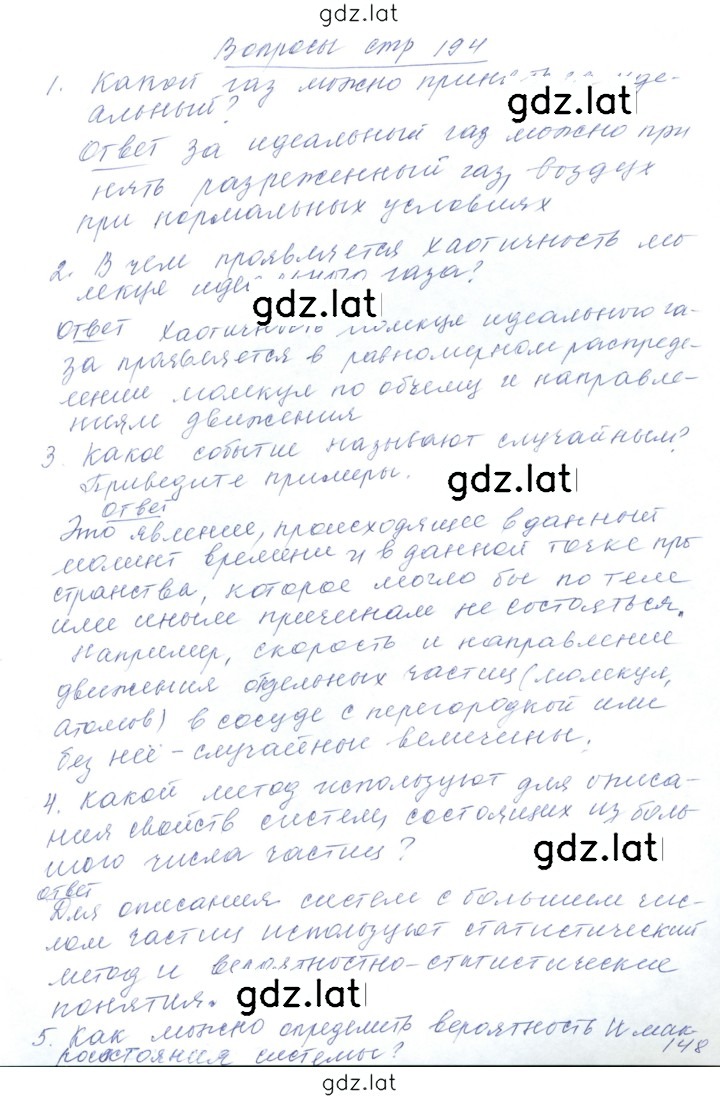 gdz.lat
Вопросы стр 194
1. Какой газ можно принять за иде-
gdz.lat
альный?
Ответ за идеальный газ можно при
нять разреженный газ, воздух
при нормальных условиях
2. В чем проявляется хаотичность мо
лекул идеального газа?
gdz.lat
Ответ Хаотичность молекул идеального га-
за проявляется в равномерном распреде-
лении молекул по объему и направле-
ниям движения
3. Какое событие называют случайным?
Приведите примеры.
gdz.lat
Ответ
Это явление, происходящее в данный
момент времени и в данной точке про
странства, которое могло бы по тем
или иным причинам не состояться.
Например, скорость и направление
движения отдельных частиц (молекул,
атомов) в сосуде с перегородкой или
без неё - случайные величины.
4. Какой метод используют для описа-
ния свойств систем, состоящих из боль
шого числа частиц?
gdz.lat
ответ
Для описания систем с большим чис-
лом частиц используют статистический
метод и вероятностно-статистические
понятия.
gdz.lat
5. Как можно определить вероятность мак
росостояния системы?
148
gdz.lat